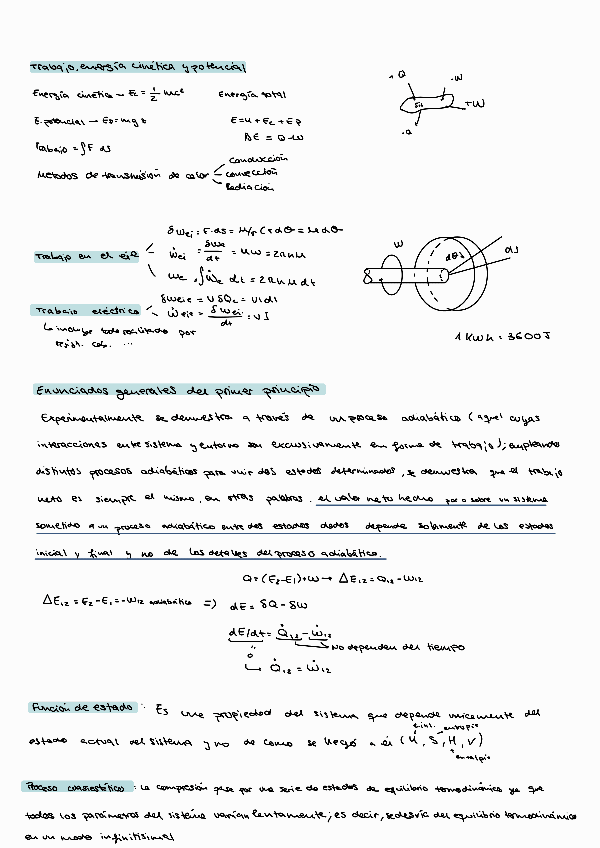 Trabajo, energía cinética y potencial
Energía cinética → Ec = 1/2 mc² Energía total
E. potencial → Ep = mgz E = U + Ec + Ep
ΔE = Q - W
Trabajo = ∫F ds
Metodos de transmisión de calor conducción
convección
Radiación
+Q -W
Sis +W
-Q
δWei = F·ds = M/r (r dθ = M dθ
Trabajo en el eje Ẇei = δWe/dt = Mω = 2πnM
We = ∫Ẇe dt = 2πnM dt
W dθ ds
Trabajo eléctrico δWele = V δQc = VI dt
Ẇele = δWei/dt = VI
Lo incluye todo realizado por
resist. cal. ...
1 KWh = 3600 J
Enunciados generales del primer principio
Experimentalmente se demuestra a través de un proceso adiabático (aquel cuyas
interacciones entre sistema y entorno son exclusivamente en forma de trabajo); empleando
distintos procesos adiabáticos para unir dos estados determinados, se demuestra que el trabajo
neto es siempre el mismo, en otras palabras. el valor neto hecho por o sobre un sistema
sometido a un proceso adiabático entre dos estados dados depende solamente de los estados
inicial y final y no de los detalles del proceso adiabático.
Q = (E2-E1)+W → ΔE12 = Q12 - W12
ΔE12 = E2 - E1 = -W12 adiabático => dE = δQ - δW
dE/dt = Q̇12 - Ẇ12
No dependen del tiempo
0
Q̇12 = Ẇ12
Función de estado : Es una propiedad del sistema que depende unicamente del
e.int. entropía
estado actual del sistema y no de como se llegó a él (U, S, H, V)
entalpía
Proceso cuasiestático : La compresión pasa por una serie de estados de equilibrio termodinámico ya que
todos los parámetros del sistema varían lentamente; es decir, se desvía del equilibrio termodinámico
en un modo infinitisimal